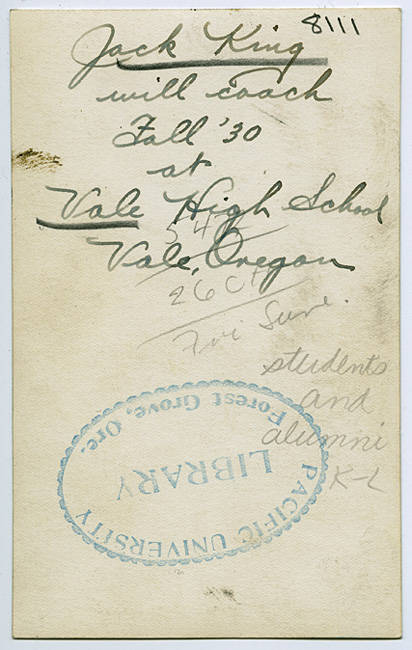 8111
Jack King
will coach
Fall '30
at
Vale High School
Vale, Oregon
26
Fri
students
and
alumni
K-L
PACIFIC UNIVERSITY
LIBRARY
Forest Grove, Ore.